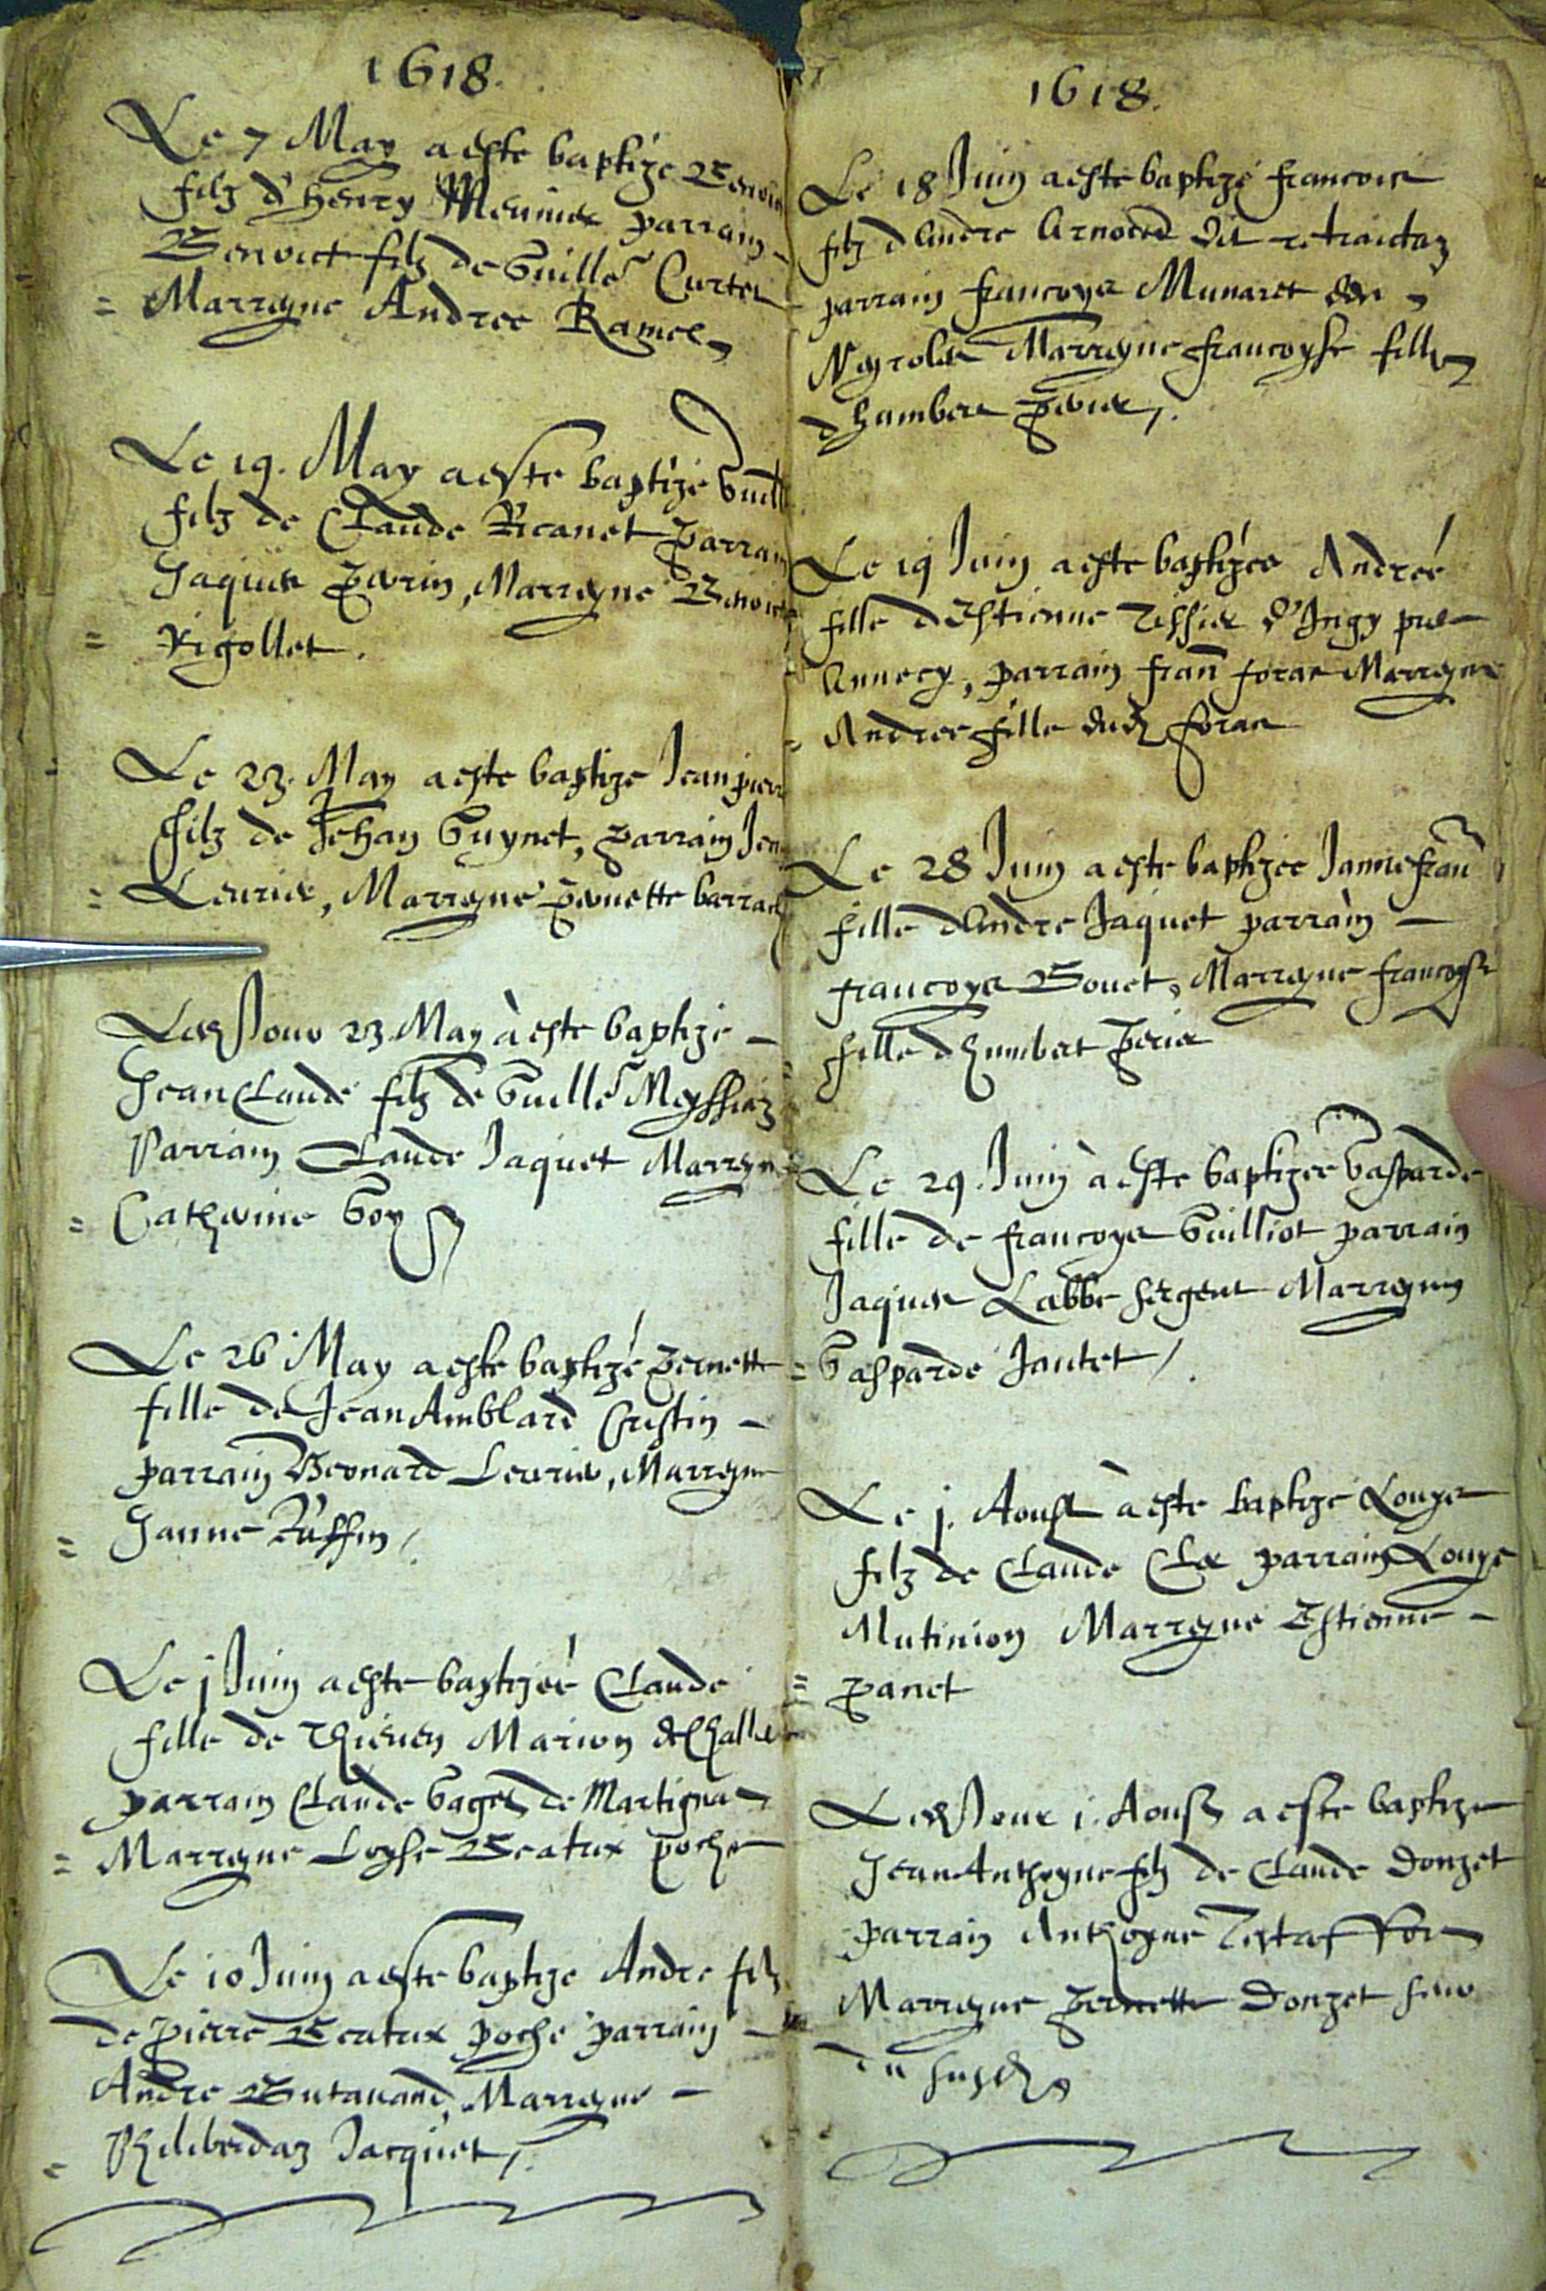 1618.
Le 7 May a este baptize Benoict
filz d'henry Meunier parrain
Benoict filz de Guille Curtet
Marregne Andree Ramel
Le 19. May a este baptizé Guill
filz de Claude Ricanet parrain
Jaques perrin, Marregne Benoicte
Rigollet.
Le 23. May a este baptize Jean pierre
filz de Jehan Guynet, parrain Jean
Leurier, Marregne pernette barrach
Led Jour 23 May à este baptizé
Jean Claude filz de Guille Meyssiaz
parrain Claude Jaquet Marregne
Catherine Goy
Le 26 May a este baptizé pernette
fille de Jean Amblard Crestin
parrain Bernard Leurier, Marregne
Janne Ruffin
Le j Juin a este baptizéé Claude
fille de Thieven Marion de Challes
parrain Claude Gaget de Martigna
Marregne Loyse Beatrix poche
Le 10 Juin a este baptizé Andre filz
de pierre Beatrix poche parrain
Andre Butavand, Marregne
Philiberdaz Jacquet
1618.
Le 18 Juin a este baptizé francois
filz d'Andre Arnoud dit retraictaz
parrain francoys Munaret de
Neyroles Marregne francoyse fille
d'humbert perier
Le 19 Juin a este baptizéé Andréé
fille d'Estienne Tissier d'Ingy pres
Annecy, parrain fran foras Marregne
Andree fille dud foras
Le 28 Juin a este baptizéé Janne fran
fille d'Andre Jaquet parrain
francoys Bouet, Marregne francoyse
fille d'humbert perier
Le 29. Juin à este baptizéé Gasparde
fille de francoys Guilliot parrain
Jaques Labbe sergent Marregne
Gasparde Jantet
Le j. Aoust à este baptizé Louys
filz de Claude Cler parrain Louys
Mutinion Marregne Estienne
panet
Led Jour 1. Aoust a este baptize
Jean Anthoyne filz de Claude Donzet
parrain Anthoyne Testaffort
Marregne pernette Donzet seur
du susd